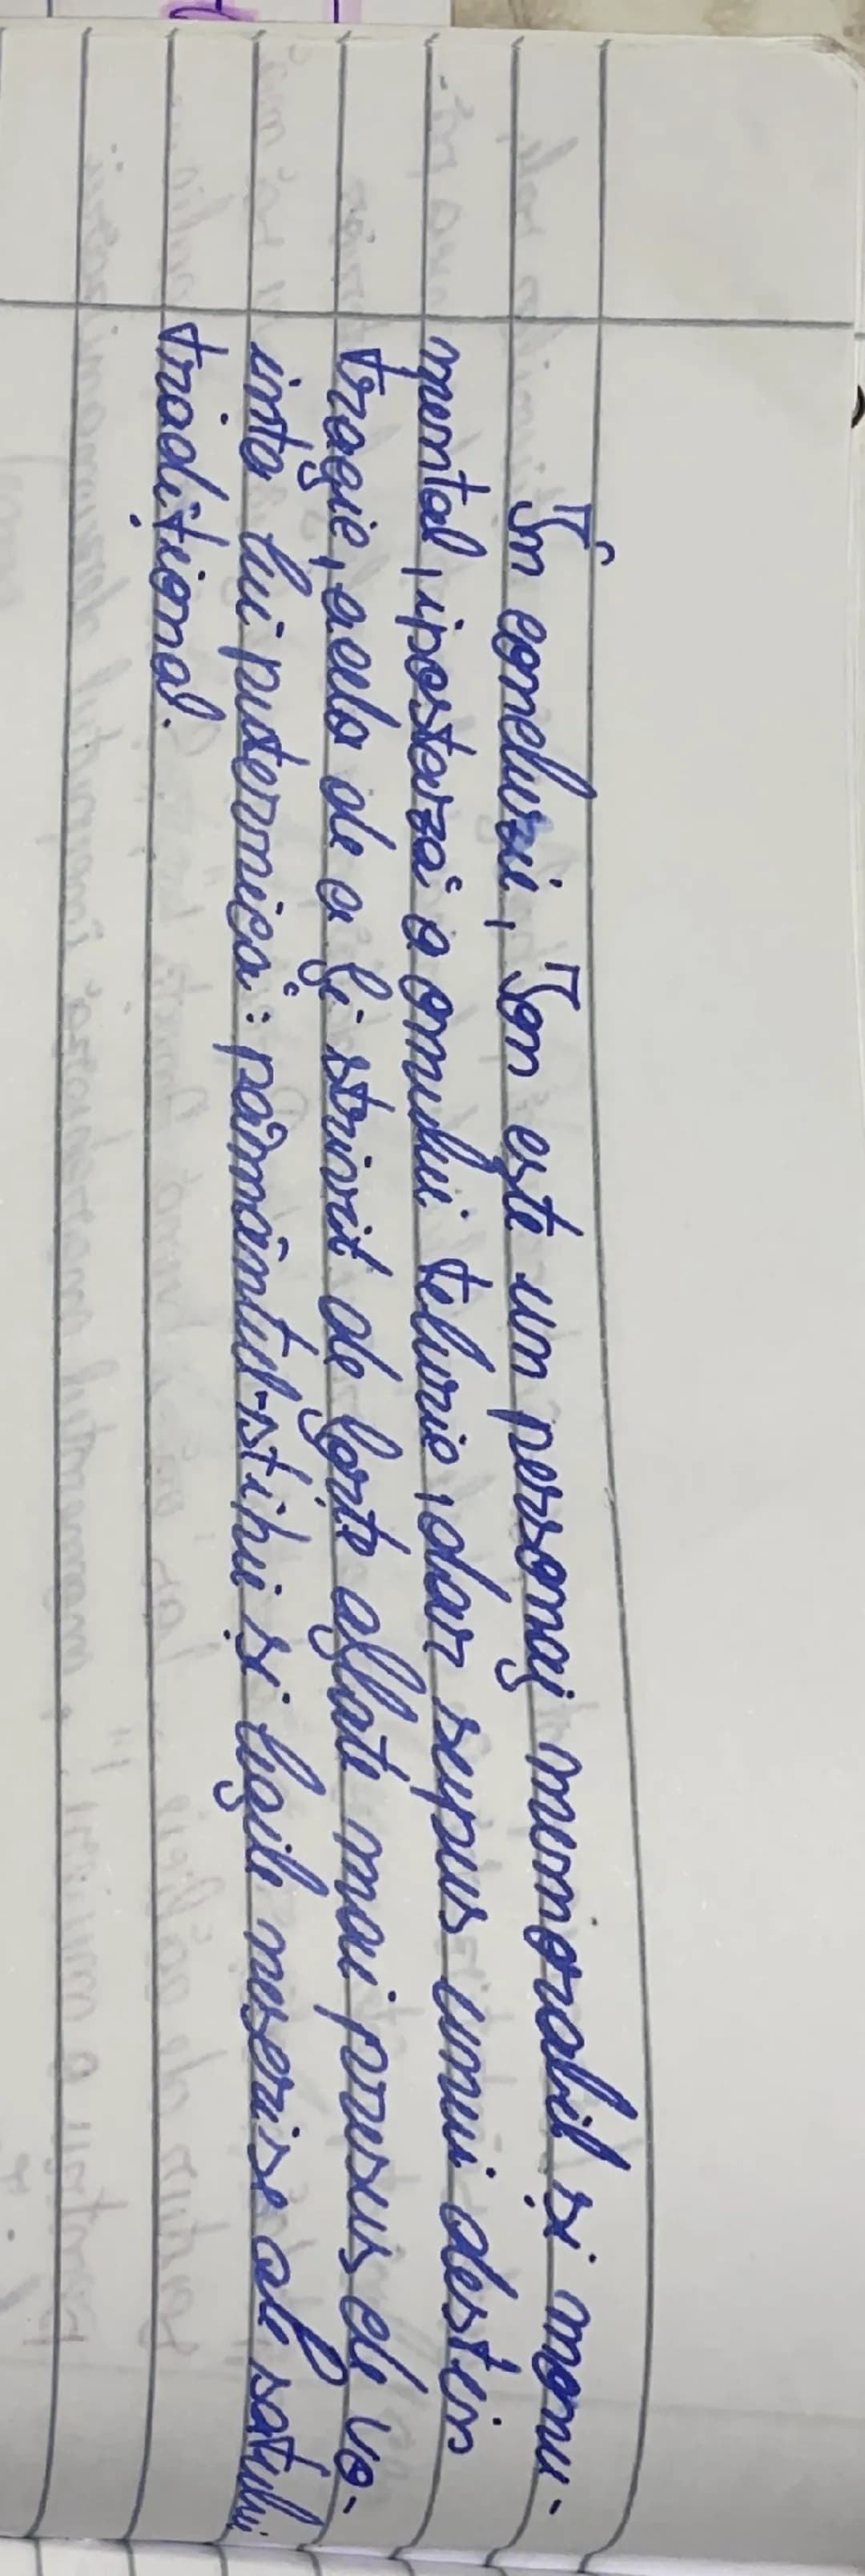 În concluzie, Ion este un personaj memorabil și monu-
mental, ipostază a omului teluric, dar supus unui destin
tragic, acela de a fi strivit de forțe aflate mai presus de vo-
ința lui puternică: pământul-stihii și legile nescrise ale satului
tradițional.